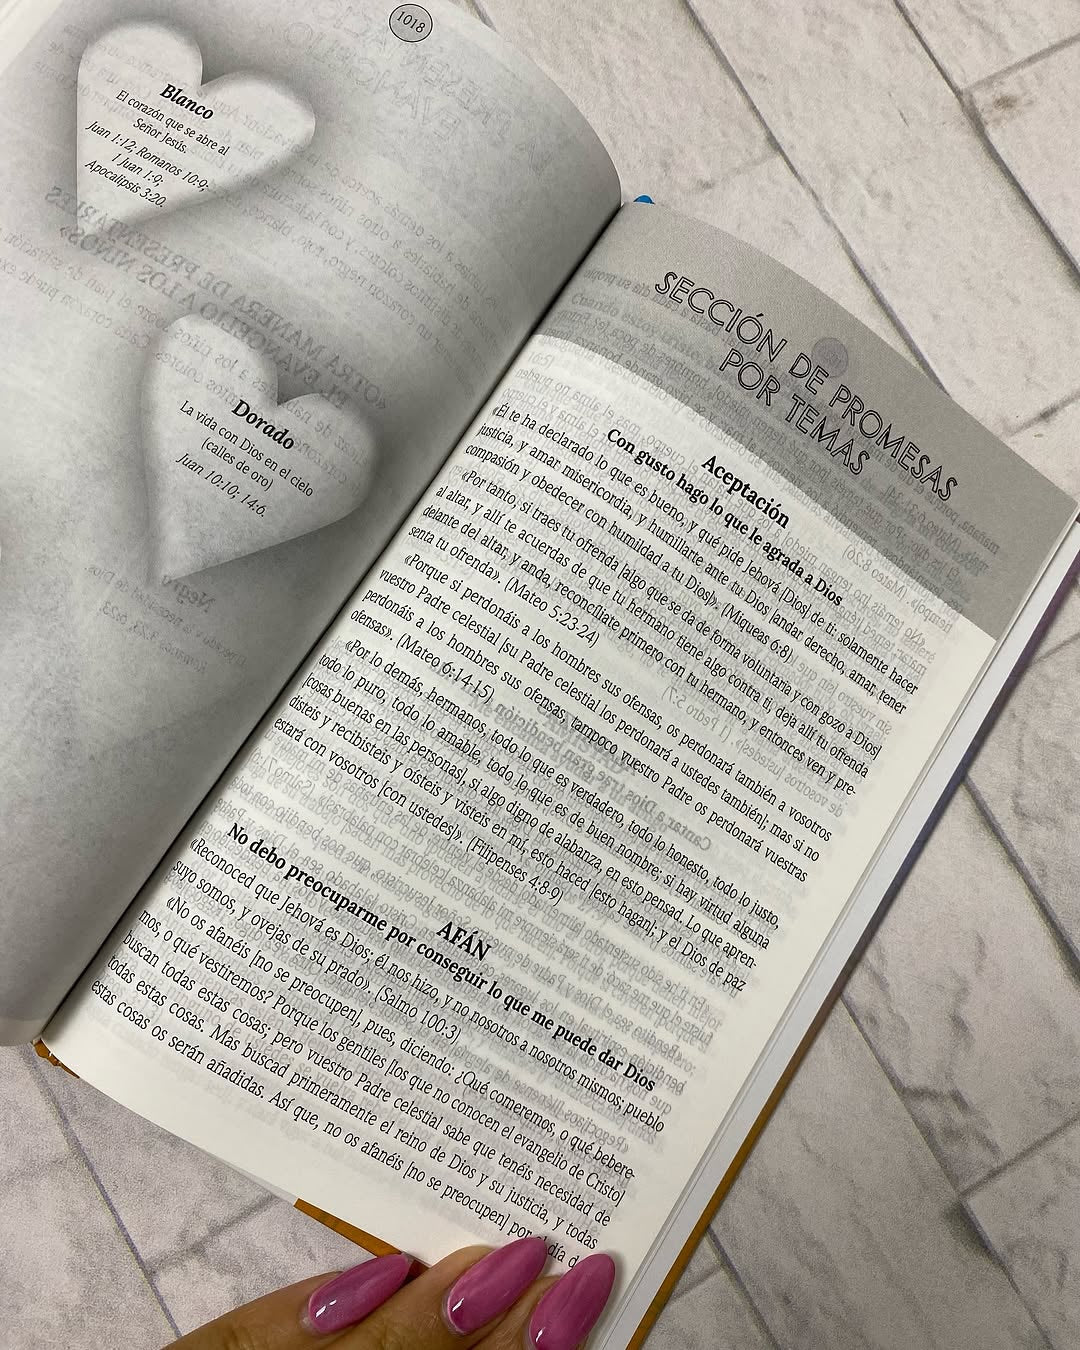 1018
Blanco
El corazón que se abre al
Señor Jesús.
Juan 1:12; Romanos 10:9;
1 Juan 1:9;
Apocalipsis 3:20.
Dorado
La vida con Dios en el cielo
[calles de oro]
Juan 10:10; 14:6.
SECCIÓN DE PROMESAS
POR TEMAS
Aceptación
Con gusto hago lo que le agrada a Dios
«Él te ha declarado lo que es bueno, y qué pide Jehová [Dios] de ti: solamente hacer
justicia, y amar misericordia, y humillarte ante tu Dios [andar derecho, amar, tener
compasión y obedecer con humildad a tu Dios]». (Miqueas 6:8)
«Por tanto, si traes tu ofrenda [algo que se da de forma voluntaria y con gozo a Dios]
al altar, y allí te acuerdas de que tu hermano tiene algo contra ti, deja allí tu ofrenda
delante del altar, y anda, reconcíliate primero con tu hermano, y entonces ven y pre-
senta tu ofrenda». (Mateo 5:23-24)
«Porque si perdonáis a los hombres sus ofensas, os perdonará también a vosotros
vuestro Padre celestial [su Padre celestial los perdonará a ustedes también]; mas si no
perdonáis a los hombres sus ofensas, tampoco vuestro Padre os perdonará vuestras
ofensas». (Mateo 6:14-15)
«Por lo demás, hermanos, todo lo que es verdadero, todo lo honesto, todo lo justo,
todo lo puro, todo lo amable, todo lo que es de buen nombre; si hay virtud alguna
[cosas buenas en las personas], si algo digno de alabanza, en esto pensad. Lo que apren-
disteis y recibisteis y oísteis y visteis en mí, esto haced [esto hagan]; y el Dios de paz
estará con vosotros [con ustedes]». (Filipenses 4:8-9)
AFÁN
No debo preocuparme por conseguir lo que me puede dar Dios
«Reconoced que Jehová es Dios; él nos hizo, y no nosotros a nosotros mismos; pueblo
suyo somos, y ovejas de su prado». (Salmo 100:3)
«No os afanéis [no se preocupen], pues, diciendo: ¿Qué comeremos, o qué bebere-
mos, o qué vestiremos? Porque los gentiles [los que no conocen el evangelio de Cristo]
buscan todas estas cosas; pero vuestro Padre celestial sabe que tenéis necesidad de
todas estas cosas. Mas buscad primeramente el reino de Dios y su justicia, y todas
estas cosas os serán añadidas. Así que, no os afanéis [no se preocupen] por el día de